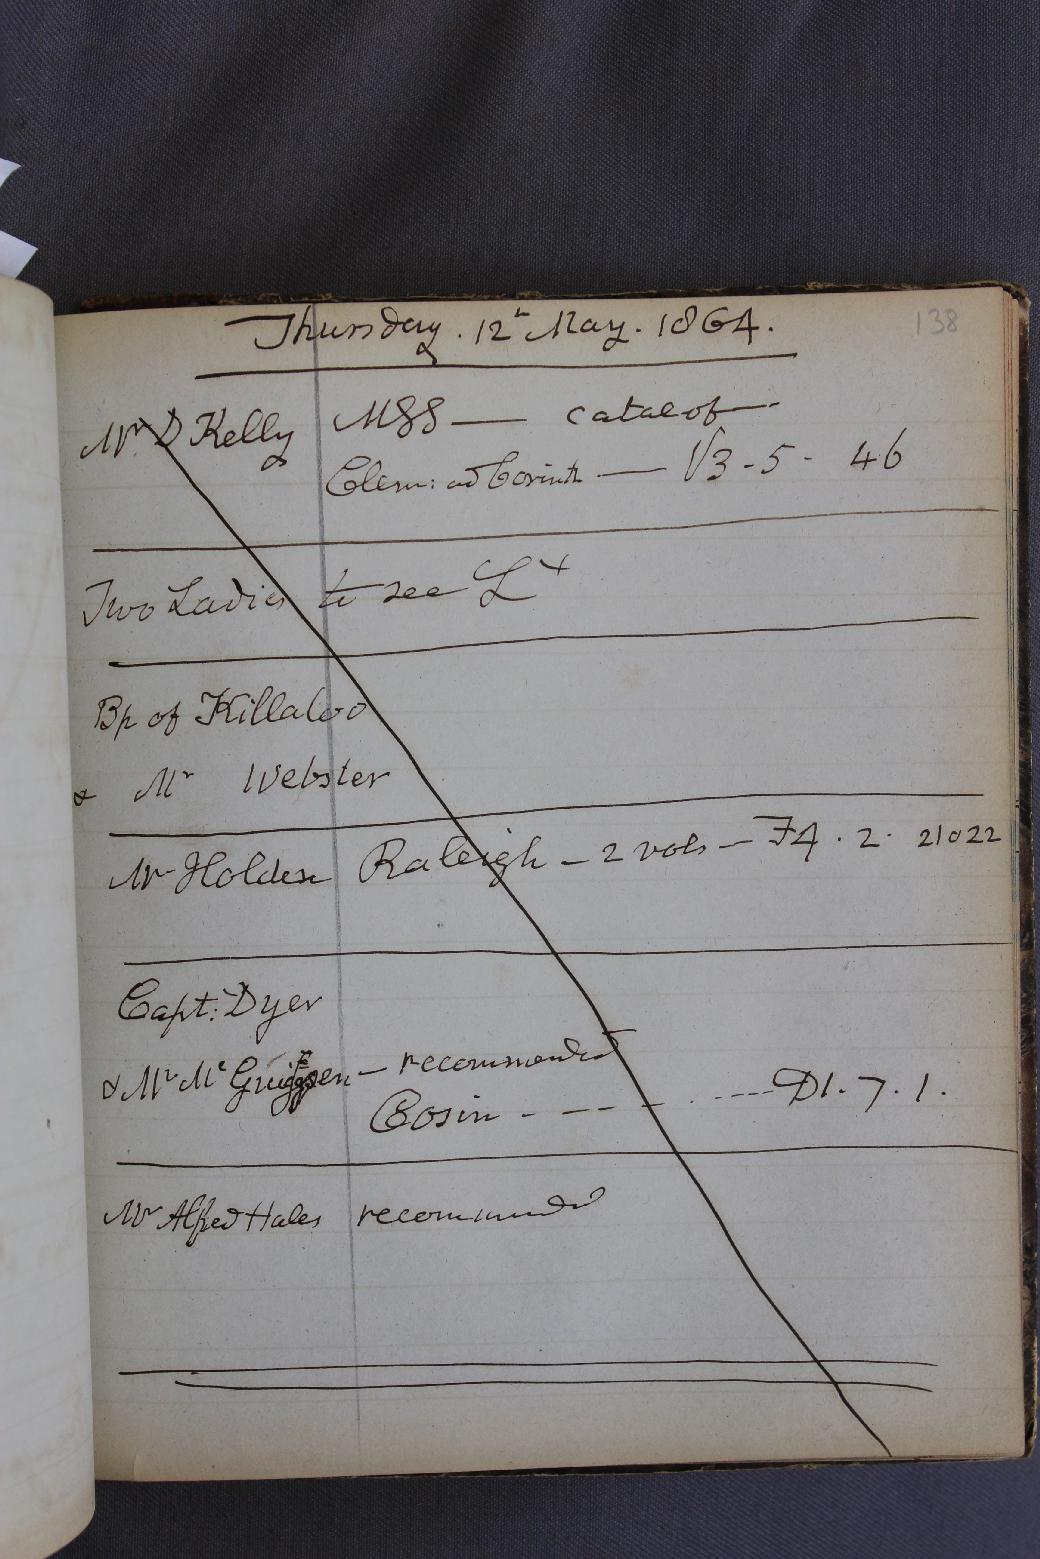 138
Thursday. 12th May. 1864.
Mr D Kelly MSS — catal of —
Clem: ad Corinth — V3-5- 46
Two Ladies to see L y
Bp of Killaloo
& Mr Webster
Mr Holden Raleigh - 2 vols - F4. 2. 21 o 22
Capt: Dyer
& Mr Mc - recommended
Cosin - - - - - D1. 7. 1.
Mr Alfred Hales recommended